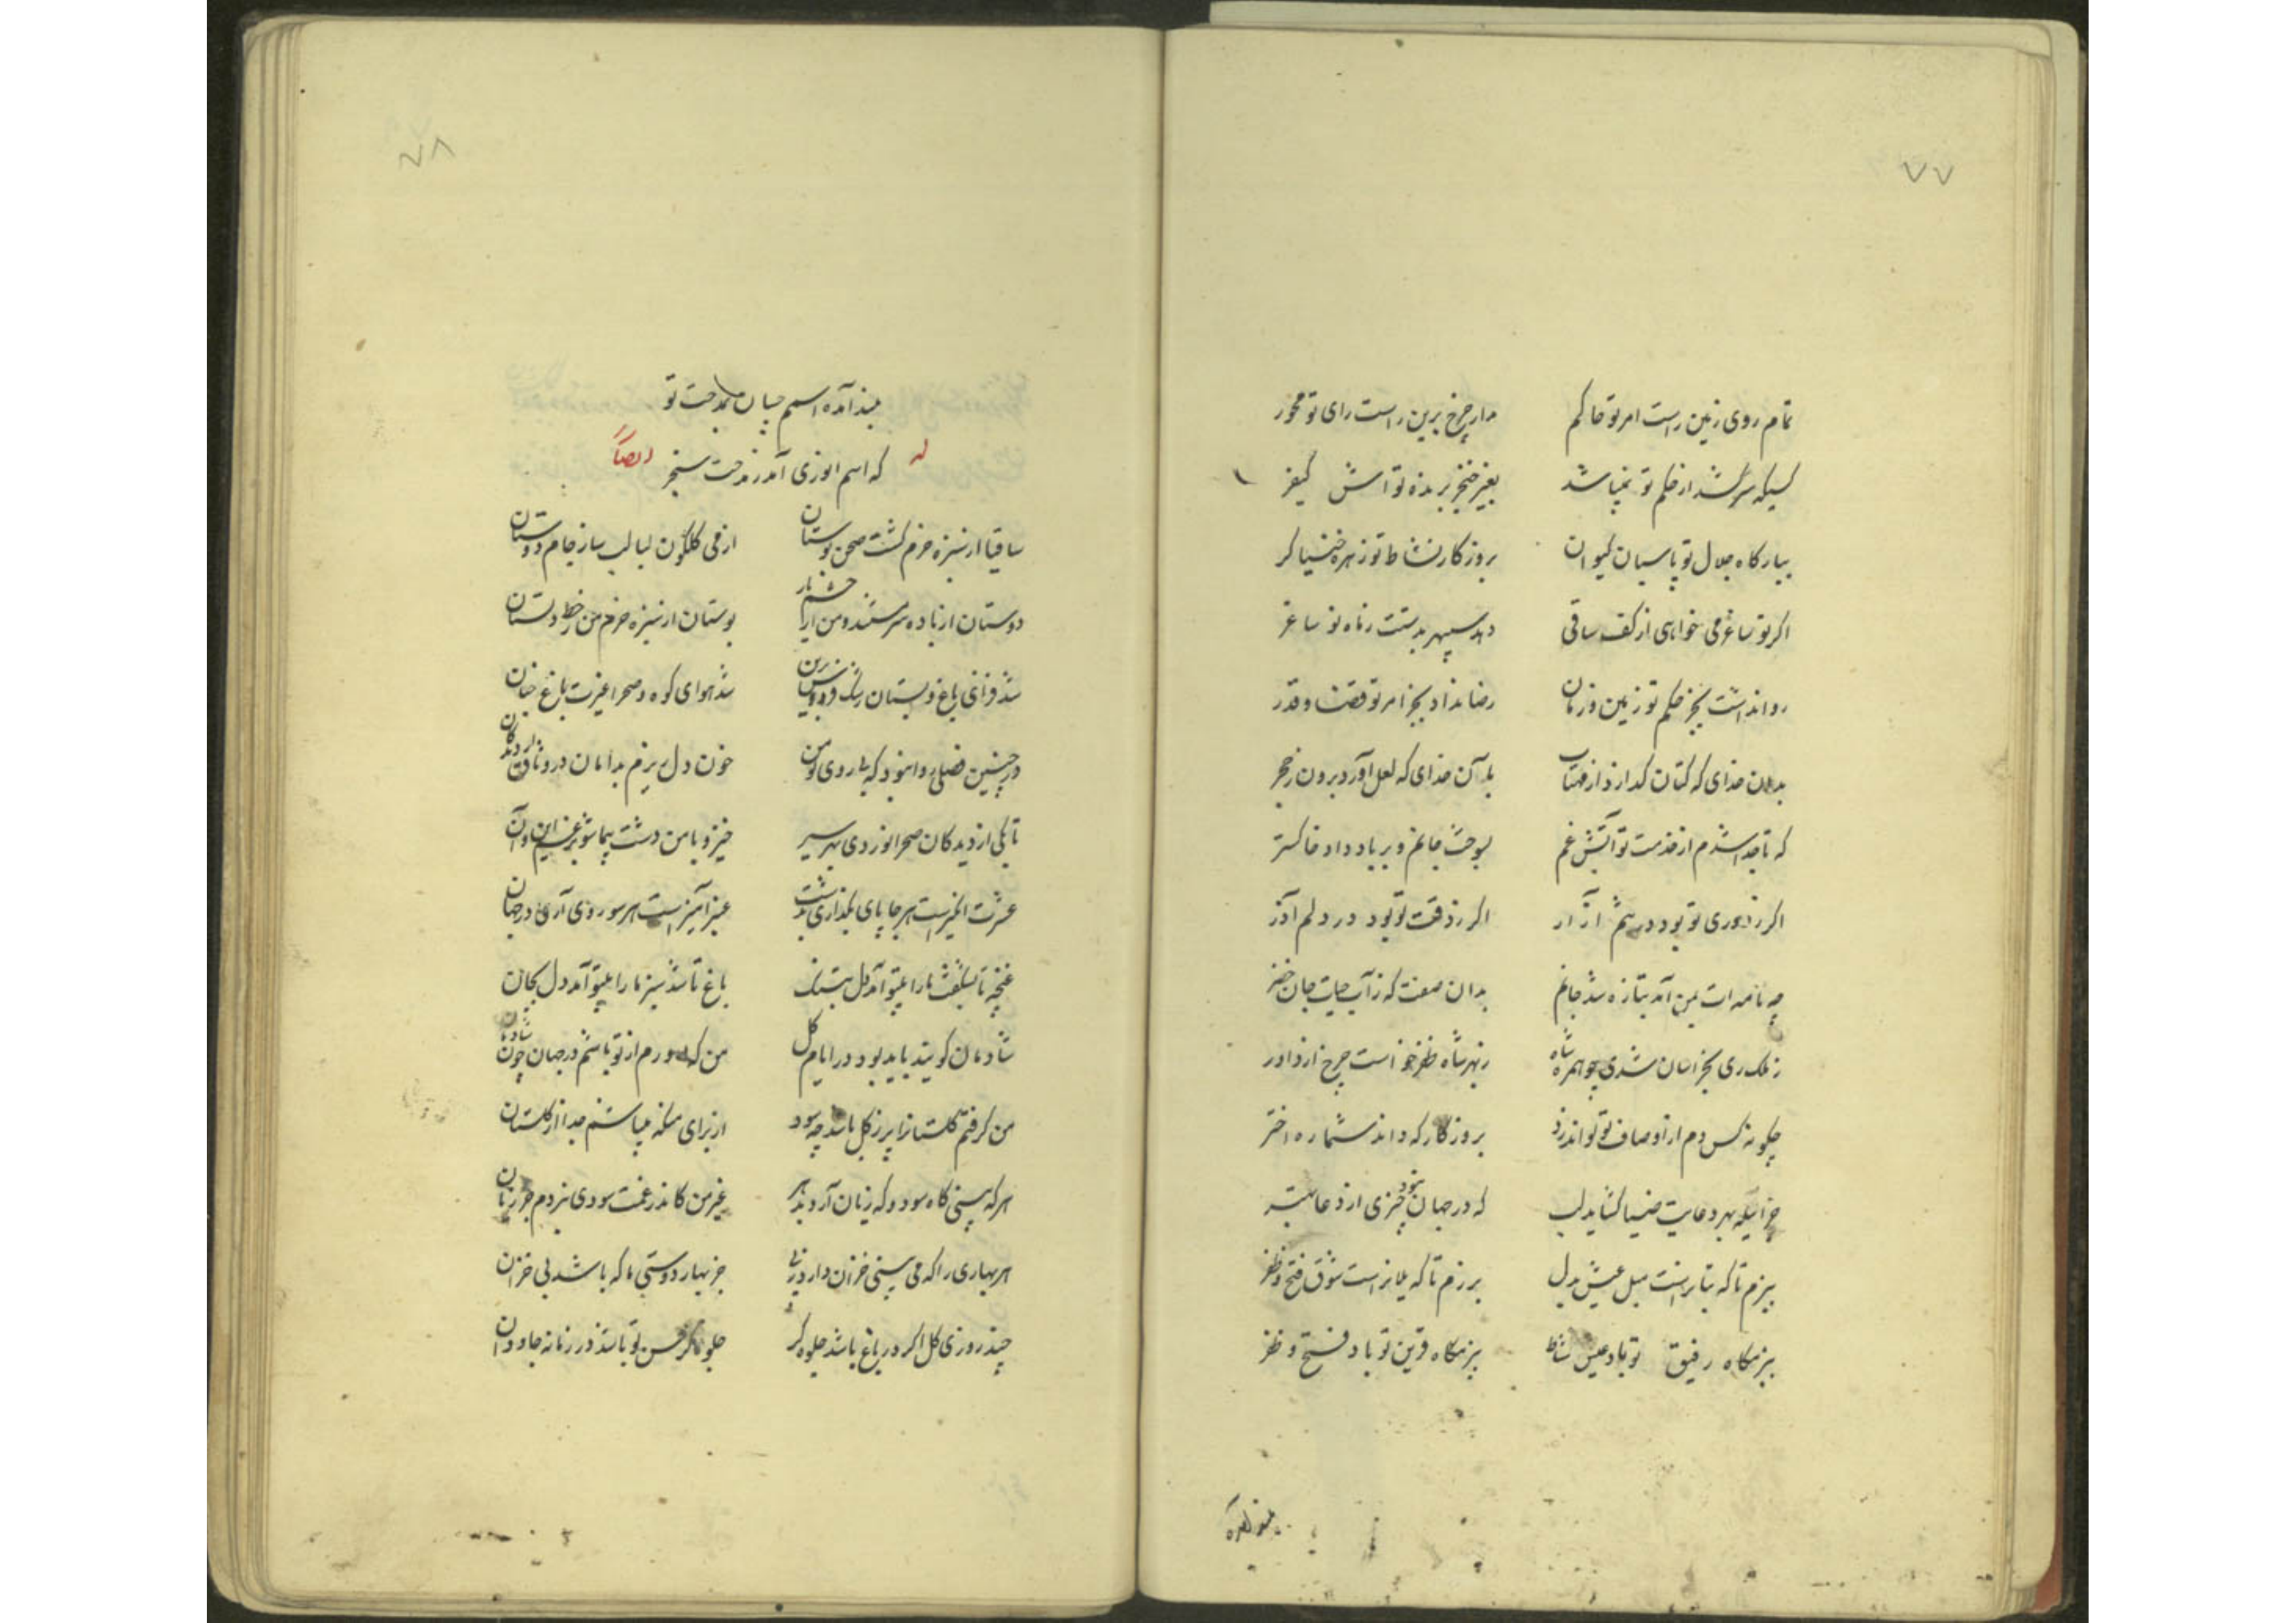 ۷۷
تمام روی زمین راست امر تو حاکم مدار چرخ برین راست رای تو محور
کسیکه سرکشد از حکم تو نمیباشد بغیر خنجر برنده تواش کیفر
ببارکاه جلال تو پاسبان کیوان بروزکار نشاط تو زهره خنیاکر
اکر تو ساغر می خواهی از کف ساقی دهد سپهر بدستت ز ماه نو ساغر
روانداشت بجز حکم تو زمین و زمان رضا نداد بجز امر تو قضا و قدر
بدان خدای که کتان کدازد از مهتاب بدان خدای که لعل آورد برون ز حجر
که تا جدا شدم از خدمت تو آتش غم بسوخت جانم و بر باد داد خاکستر
اکر ز دوری تو بود در تنم آزار اکر ز فرقت تو بود در دلم آذر
چه نامه ات بمن آمد بتازه شد جانم بدان صفت که ز آب حیات جان خضر
ز ملک ری بخراسان شدی چو همره شاه ز بهر شاه ظفر خواست چرخ از داور
چکونه کس دم از اوصاف تو تواند زد بروزکار که داند شماره اختر
جز اینکه بهر دعایت ضیا کشاید لب که در جهان نبود چیزی از دعا بهتر
ببزم تا که بتابرانست میل عیش بدل برزم تا که یلانراست شوق فتح و ظفر
ببزمکاه رفیق تو باد عیش و نشاط برزمکاه قرین تو باد فتح و ظفر
بلند آمده
۷۸
بلند آمده اسم چنان بمدحت تو
که اسم انوری آمد ز مدحت سنجر
له ایضاً
ساقیا از سبزه خرم کشت صحن بوستان از می کلکون لبالب ساز جام دوستان
دوستان از باده سرمستند و من از چشم یار بوستان از سبزه خرم من ز خط دلستان
شد فزای باغ و بستان رشک فردوس برین شد هوای کوه و صحرا غیرت باغ جنان
در چنین فصلی روا نبود که بی روی تو من خون دل ریزم بدامان در وثاق از دیدکان
تا بکی از دیدکان صحرا نوردی بهر سیر خیز و با من دشت پیما شو برغم این و آن
عشرت انکیز است هر جا پای بکذاری بدشت عنبر آمیز است هر سو روی آری در جهان
غنچه تا بشکفت ما را بیتو آمد دل بتنک باغ تا شد سبز ما را بیتو آمد دل بجان
شادمان کویند باید بود در ایام کل من که دورم از تو باشم در جهان چون شادمان
من کرفتم کلستانرا پر ز کل باشد چه سود از برای من که میباشم جدا از کلستان
هر که بینی کاه سود و که زیان آرد بدهر غیر من کاندر غمت سودی نبردم جز زیان
هر بهاری را که می بینی خزان دارد ز پی جز بهار دوستی ما که باشد بی خزان
چند روزی کل اکر در باغ باشد جلوه کر جلوه کر حسن تو باشد در زمانه جاودان